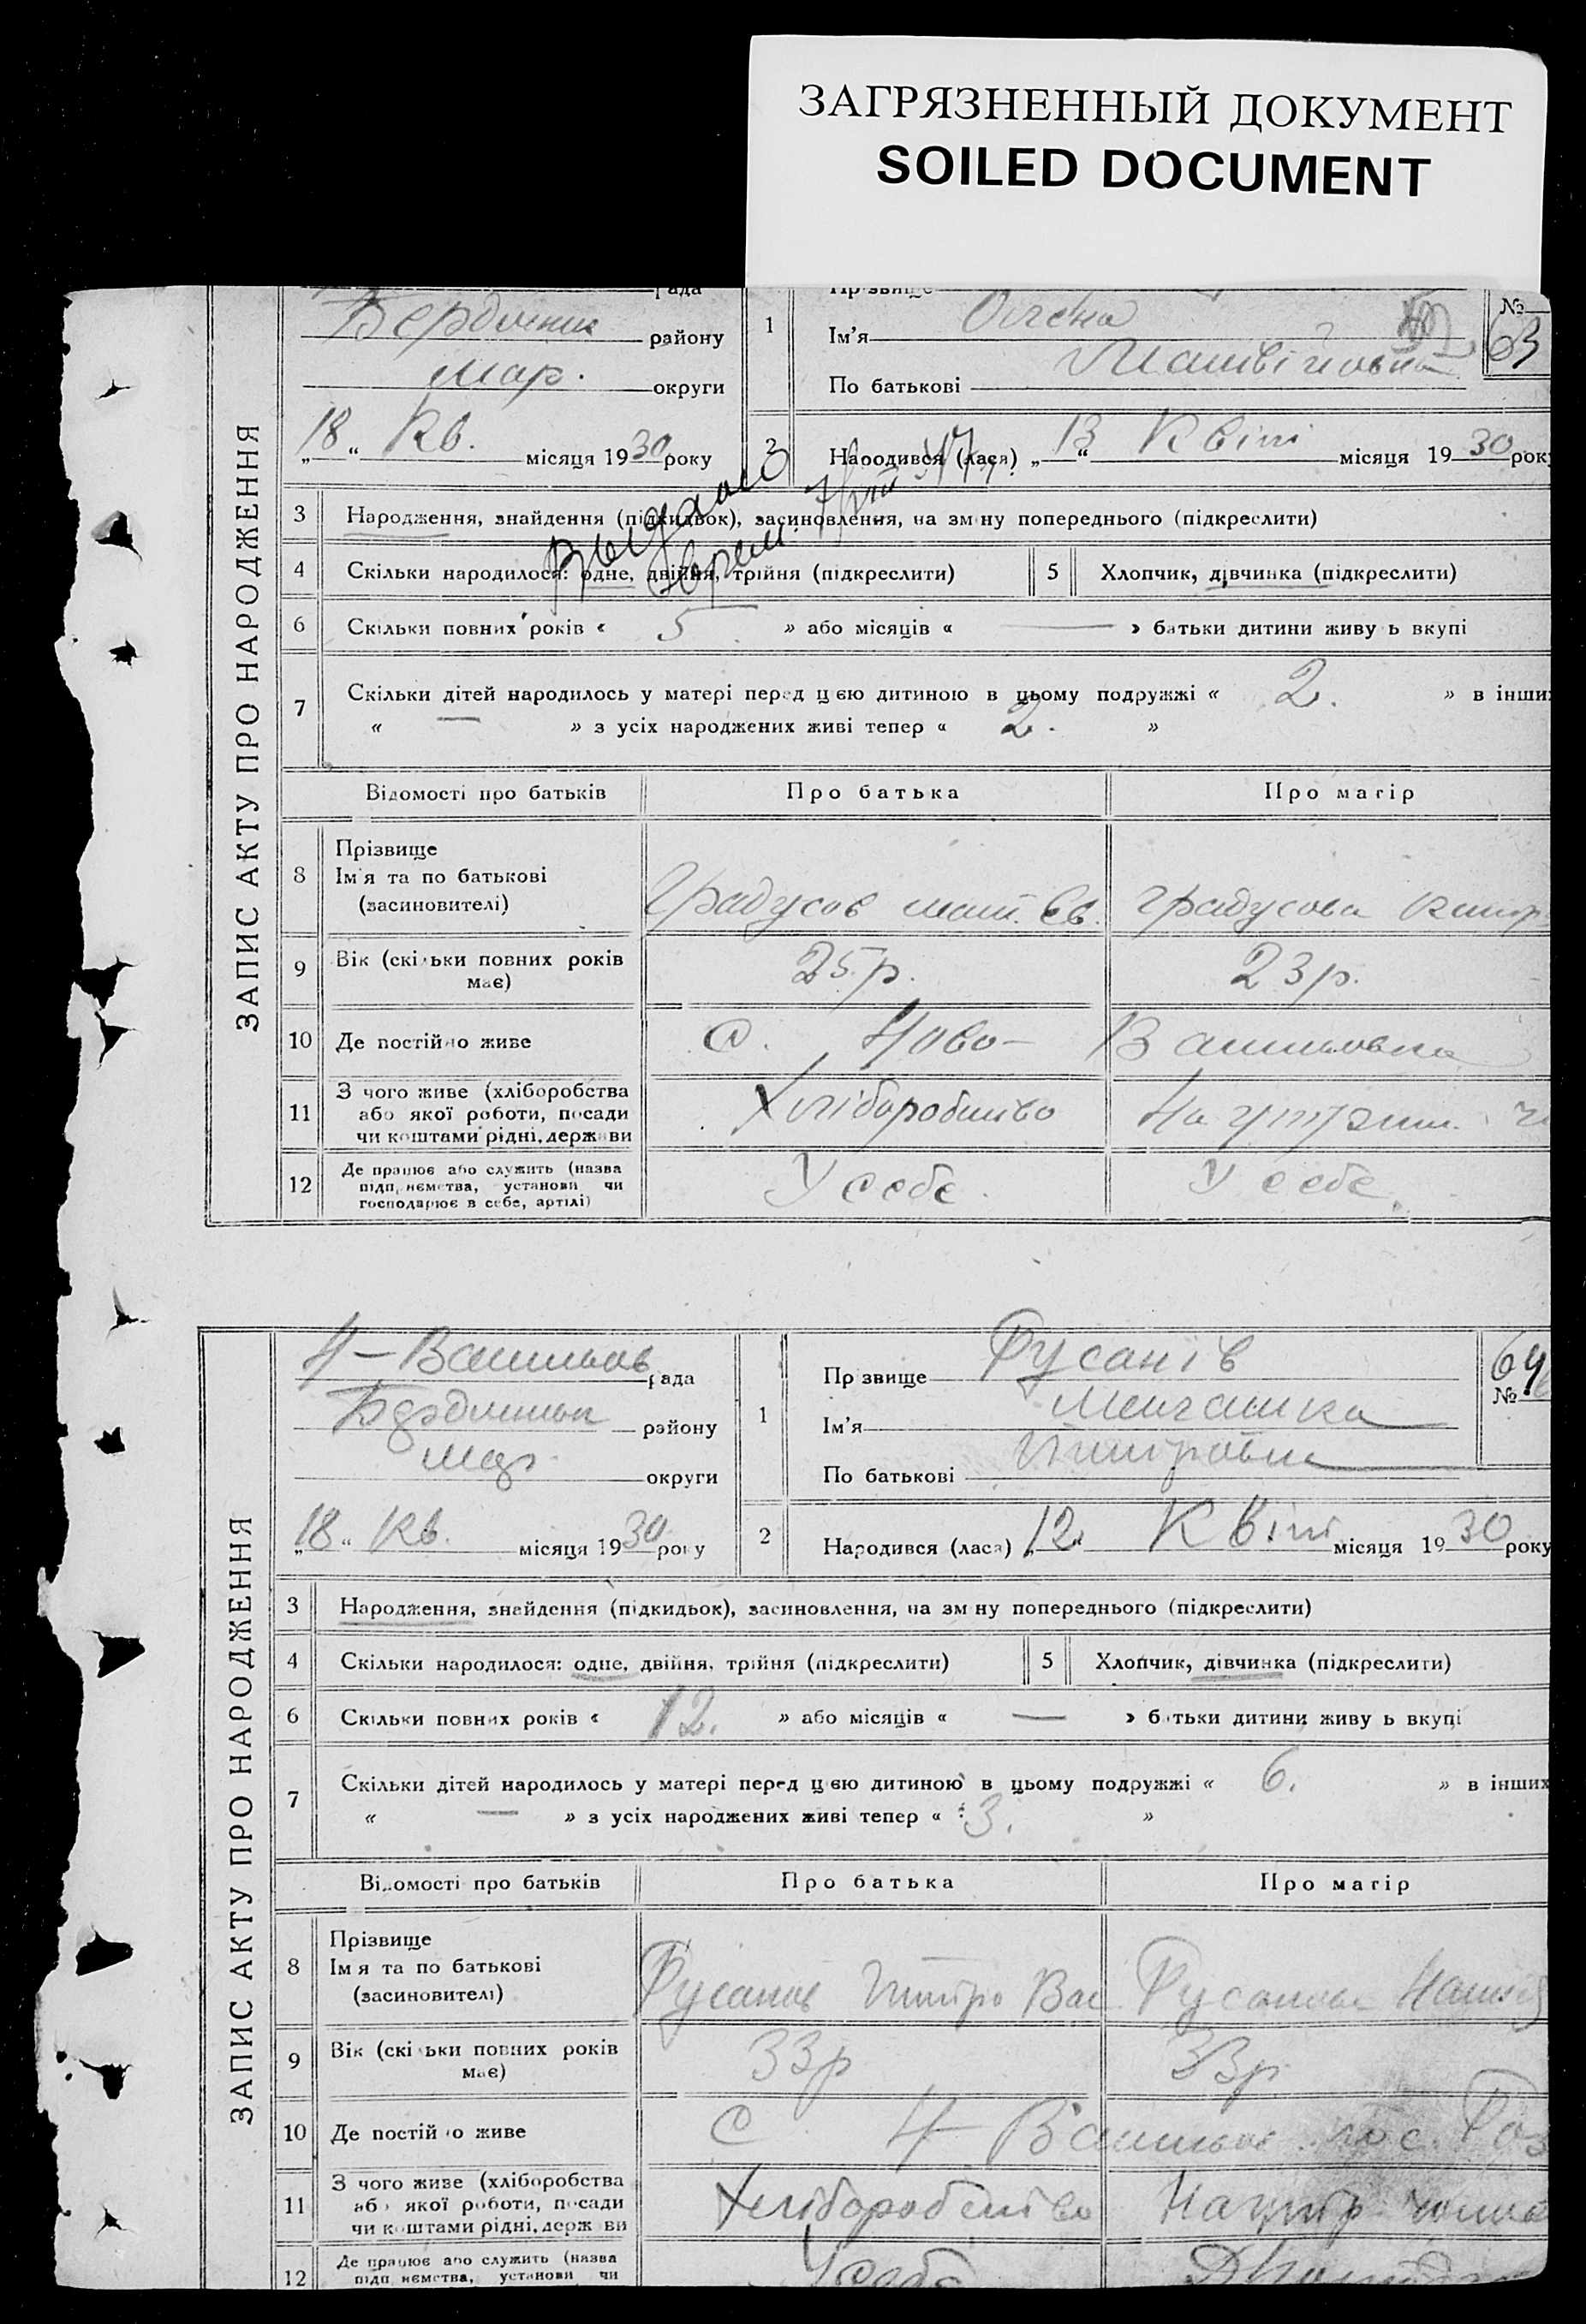 ЗАГРЯЗНЕННЫЙ ДОКУМЕНТ
SOILED DOCUMENT
ЗАПИС АКТУ ПРО НАРОДЖЕННЯ
рада
району
мар. округи
„18“ Кв. місяця 1930 року
1
Прізвище
Ім'я Олена
По батькові Матвійовна
№ 63
2
Народився (лася) „13“ Квіт місяця 1930 року
Выдано
3 Народження, знайдення (підкидьок), засиновлення, на зміну попереднього (підкреслити)
4 Скільки народилося: одне, двійня, трійня (підкреслити)
5 Хлопчик, дівчинка (підкреслити)
6 Скільки повних років « 5 » або місяців « — » батьки дитини живуть вкупі
7 Скільки дітей народилось у матері перед цією дитиною в цьому подружжі « 2. » в інши
« — » з усіх народжених живі тепер « 2. »
Відомості про батьків Про батька Про матір
8 Прізвище
Ім'я та по батькові
(засиновителі)
Градусов Матв. Єв. Градусова
9 Вік (скільки повних років має) 25 р. 23 р.
10 Де постійно живе с. Ново-
11 З чого живе (хліборобства
або якої роботи, посади
чи коштами рідні, держави
Хліборобство
12 Де працює або служить (назва
підприємства, установи чи
господарює в себе, артілі)
У себе У себе
ЗАПИС АКТУ ПРО НАРОДЖЕННЯ
рада
району
мар. округи
„18“ Кв. місяця 1930 року
1
Прізвище Русанів
Ім'я
По батькові
64
№
2
Народився (лася) „12“ Квіт місяця 1930 року
3 Народження, знайдення (підкидьок), засиновлення, на зміну попереднього (підкреслити)
4 Скільки народилося: одне, двійня, трійня (підкреслити)
5 Хлопчик, дівчинка (підкреслити)
6 Скільки повних років « 12. » або місяців « — » батьки дитини живуть вкупі
7 Скільки дітей народилось у матері перед цією дитиною в цьому подружжі « 6. » в інших
« — » з усіх народжених живі тепер « 3. »
Відомості про батьків Про батька Про матір
8 Прізвище
Ім'я та по батькові
(засиновителі)
Русанів Вас Русанова
9 Вік (скільки повних років має) 33 р 33 р
10 Де постійно живе с
11 З чого живе (хліборобства
або якої роботи, посади
чи коштами рідні, держави
Хліборобство
12 Де працює або служить (назва
підприємства, установи чи
У себе